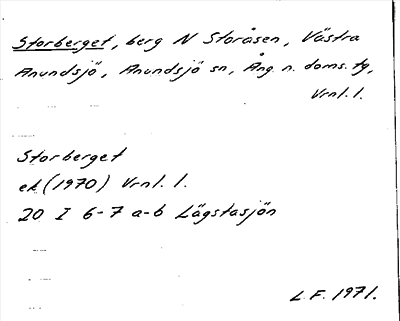 Storberget, berg N Storåsen, Västra
Anundsjö, Anundsjö sn, Ång. n. doms. tg,
Vrnl. l.
Storberget
ek (1970) Vrnl. l.
20 I 6-7 a-b Lägstasjön
L.F. 1971.